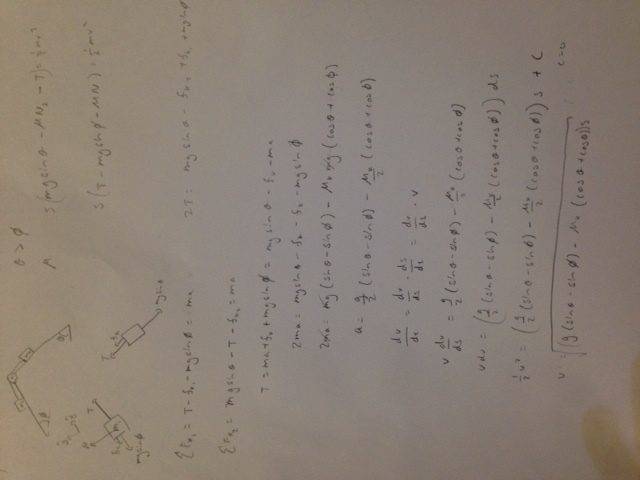 θ > φ
μ
S(mg sinθ - μN₂ - T) = ½mv²
S(T - mg sinφ - μN) = ½mv²
ΣF₁ = T - f - mg sinφ = ma
ΣF₂ = mg sinθ - T - f = ma
T = ma + f + mg sinφ = mg sinθ - f - ma
2ma = mg sinθ - f - f - mg sinφ
2ma = mg(sinθ - sinφ) - μₖ mg(cosθ + cosφ)
a = g/2 (sinθ - sinφ) - μₖ/2 (cosθ + cosφ)
dv/dt = dv/ds · ds/dt = dv/ds · v
v dv/ds = g/2 (sinθ - sinφ) - μₖ/2 (cosθ + cosφ)
v dv = (g/2 (sinθ - sinφ) - μₖ/2 (cosθ + cosφ)) ds
½v² = (g/2 (sinθ - sinφ) - μₖ/2 (cosθ + cosφ)) s + C
C=0
v = √(g(sinθ - sinφ) - μₖ (cosθ + cosφ))s
2T = mg sinθ
mg sinθ
mg sinφ